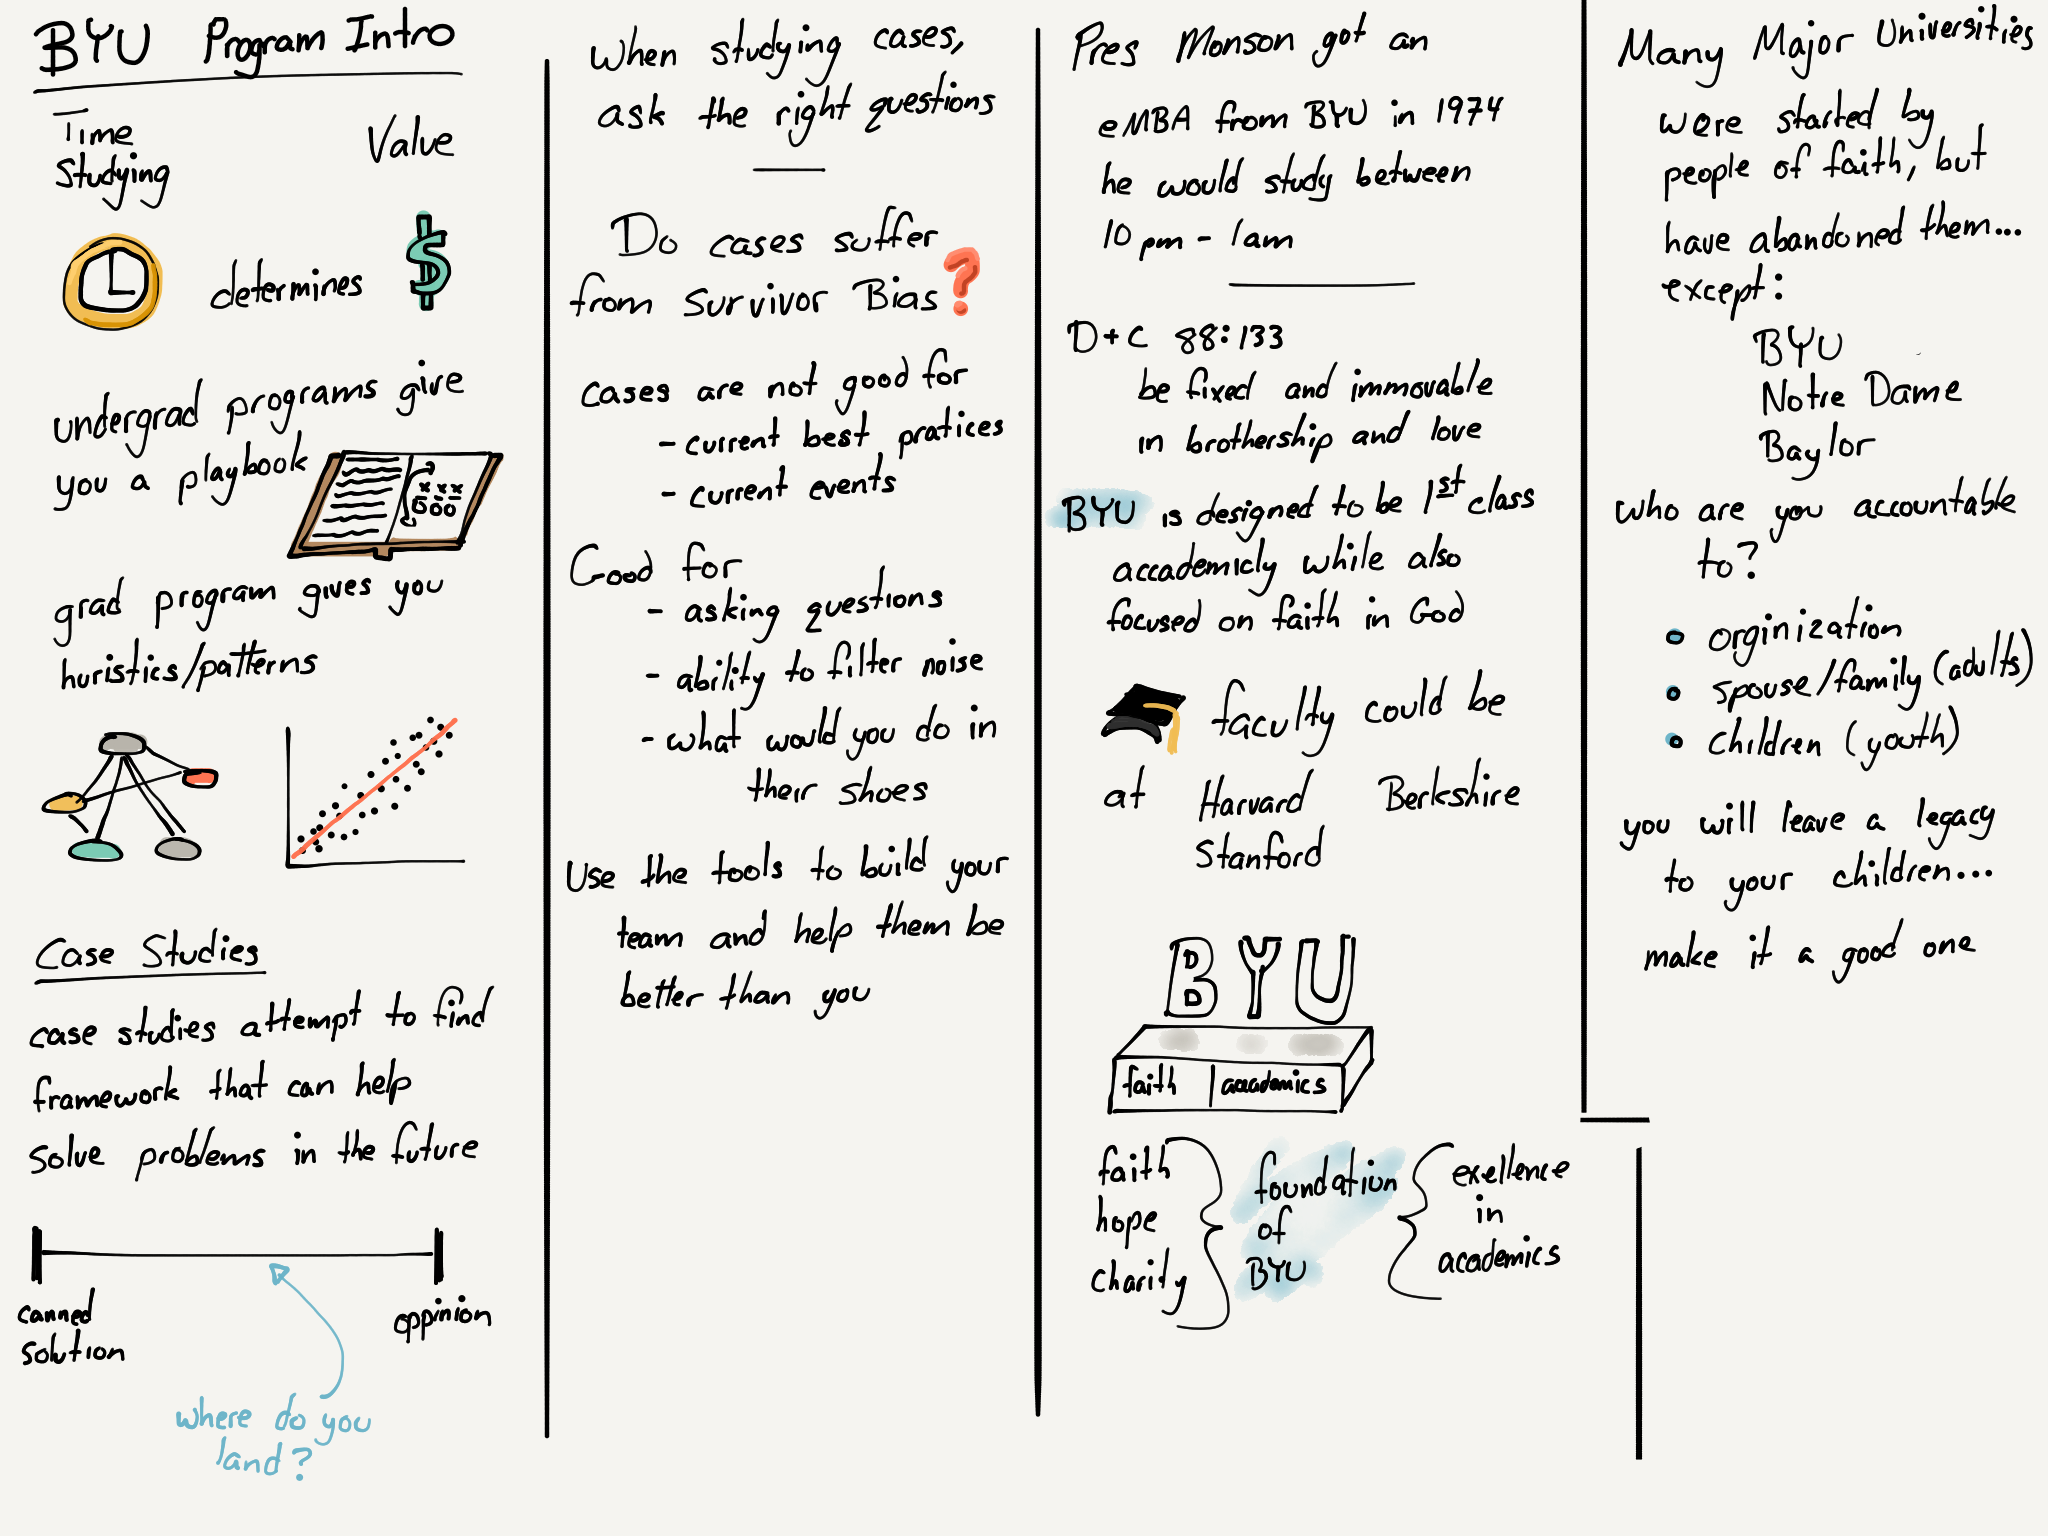 BYU Program Intro
Time
Studying
Value
determines
$
undergrad programs give
you a playbook
x x x
o o o
grad program gives you
huristics/patterns
Case Studies
case studies attempt to find
framework that can help
solve problems in the future
canned
solution
oppinion
where do you
land?
When studying cases,
ask the right questions
Do cases suffer
from Survivor Bias?
cases are not good for
- current best pratices
- current events
Good for
- asking questions
- ability to filter noise
- what would you do in
their shoes
Use the tools to build your
team and help them be
better than you
Pres Monson got an
eMBA from BYU in 1974
he would study between
10 pm - 1am
D+C 88:133
be fixed and immovable
in brothership and love
BYU is designed to be 1st class
accademicly while also
focused on faith in God
faculty could be
at Harvard Berkshire
Stanford
BYU
faith | academics
faith
hope
charity
foundation
of
BYU
exellence
in
academics
Many Major Universities
were started by
people of faith, but
have abandoned them...
except:
BYU
Notre Dame
Baylor
who are you accountable
to?
orginization
spouse/family (adults)
children (youth)
you will leave a legacy
to your children...
make it a good one